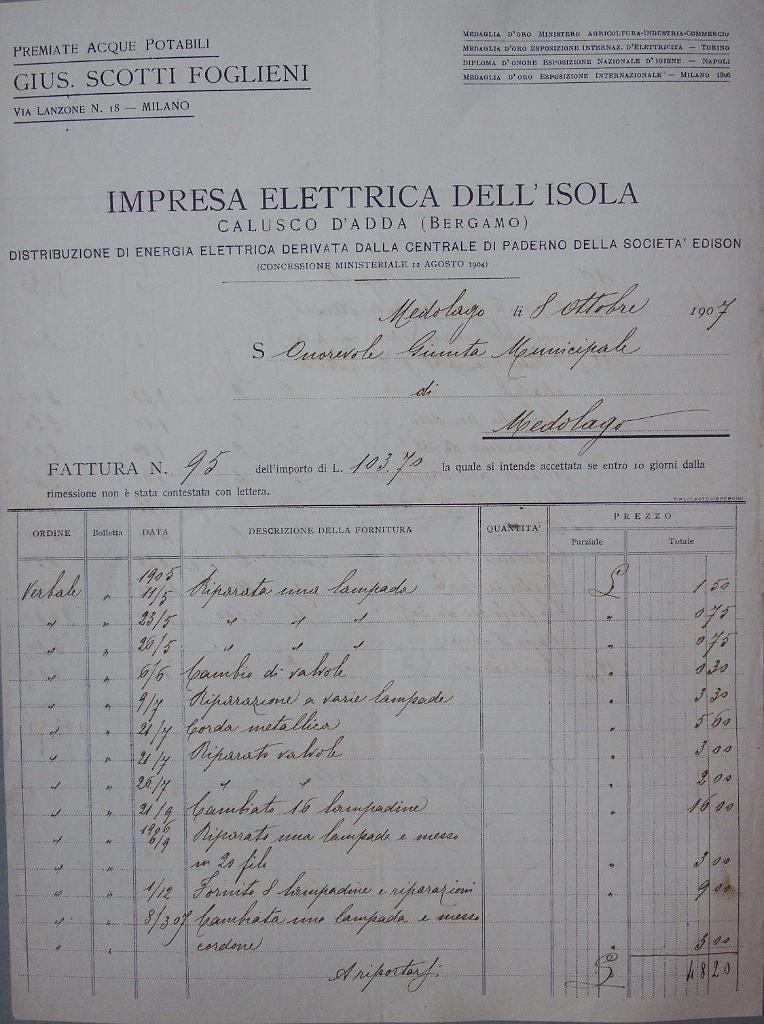 PREMIATE ACQUE POTABILI
GIUS. SCOTTI FOGLIENI
VIA LANZONE N. 18 — MILANO
MEDAGLIA D'ORO MINISTERO AGRICOLTURA-INDUSTRIA-COMMERCIO
MEDAGLIA D'ORO ESPOSIZIONE INTERNAZ. D'ELETTRICITÀ — TORINO
DIPLOMA D'ONORE ESPOSIZIONE NAZIONALE D'IGIENE — NAPOLI
MEDAGLIA D'ORO ESPOSIZIONE INTERNAZIONALE — MILANO 1906
IMPRESA ELETTRICA DELL'ISOLA
CALUSCO D'ADDA (BERGAMO)
DISTRIBUZIONE DI ENERGIA ELETTRICA DERIVATA DALLA CENTRALE DI PADERNO DELLA SOCIETA' EDISON
(CONCESSIONE MINISTERIALE 12 AGOSTO 1904)
Medolago li 8 Ottobre 1907
S Onorevole Giunta Municipale
di
Medolago
FATTURA N. 95 dell'importo di L. 103.70 la quale si intende accettata se entro 10 giorni dalla
rimessione non è stata contestata con lettera.
ORDINE Bolletta DATA DESCRIZIONE DELLA FORNITURA QUANTITA' PREZZO
Parziale Totale
1905
Verbale " 11/5 Riparata una lampada £ 1 50
" " 23/5 " " " " 0 75
" " 26/5 " " " " 0 75
" " 6/6 Cambio di valvole " 0 30
" " 9/7 Riparrazione a varie lampade " 3 30
" " 21/7 Corda metallica " 5 60
" " 21/7 Riparato valvole " 3 00
" " 26/7 " " " 2 00
" " 21/9 Cambiato 16 lampadine " 16 00
1906
" " 6/9 Riparato una lampada e messo
" " m 20 fili " 3 00
" " 1/12 Fornito 8 lampadine e riparazioni " 9 00
" " 8/3 07 Cambiata una lampada e messo
" cordone " 3 00
A riportarsi £ 48 20